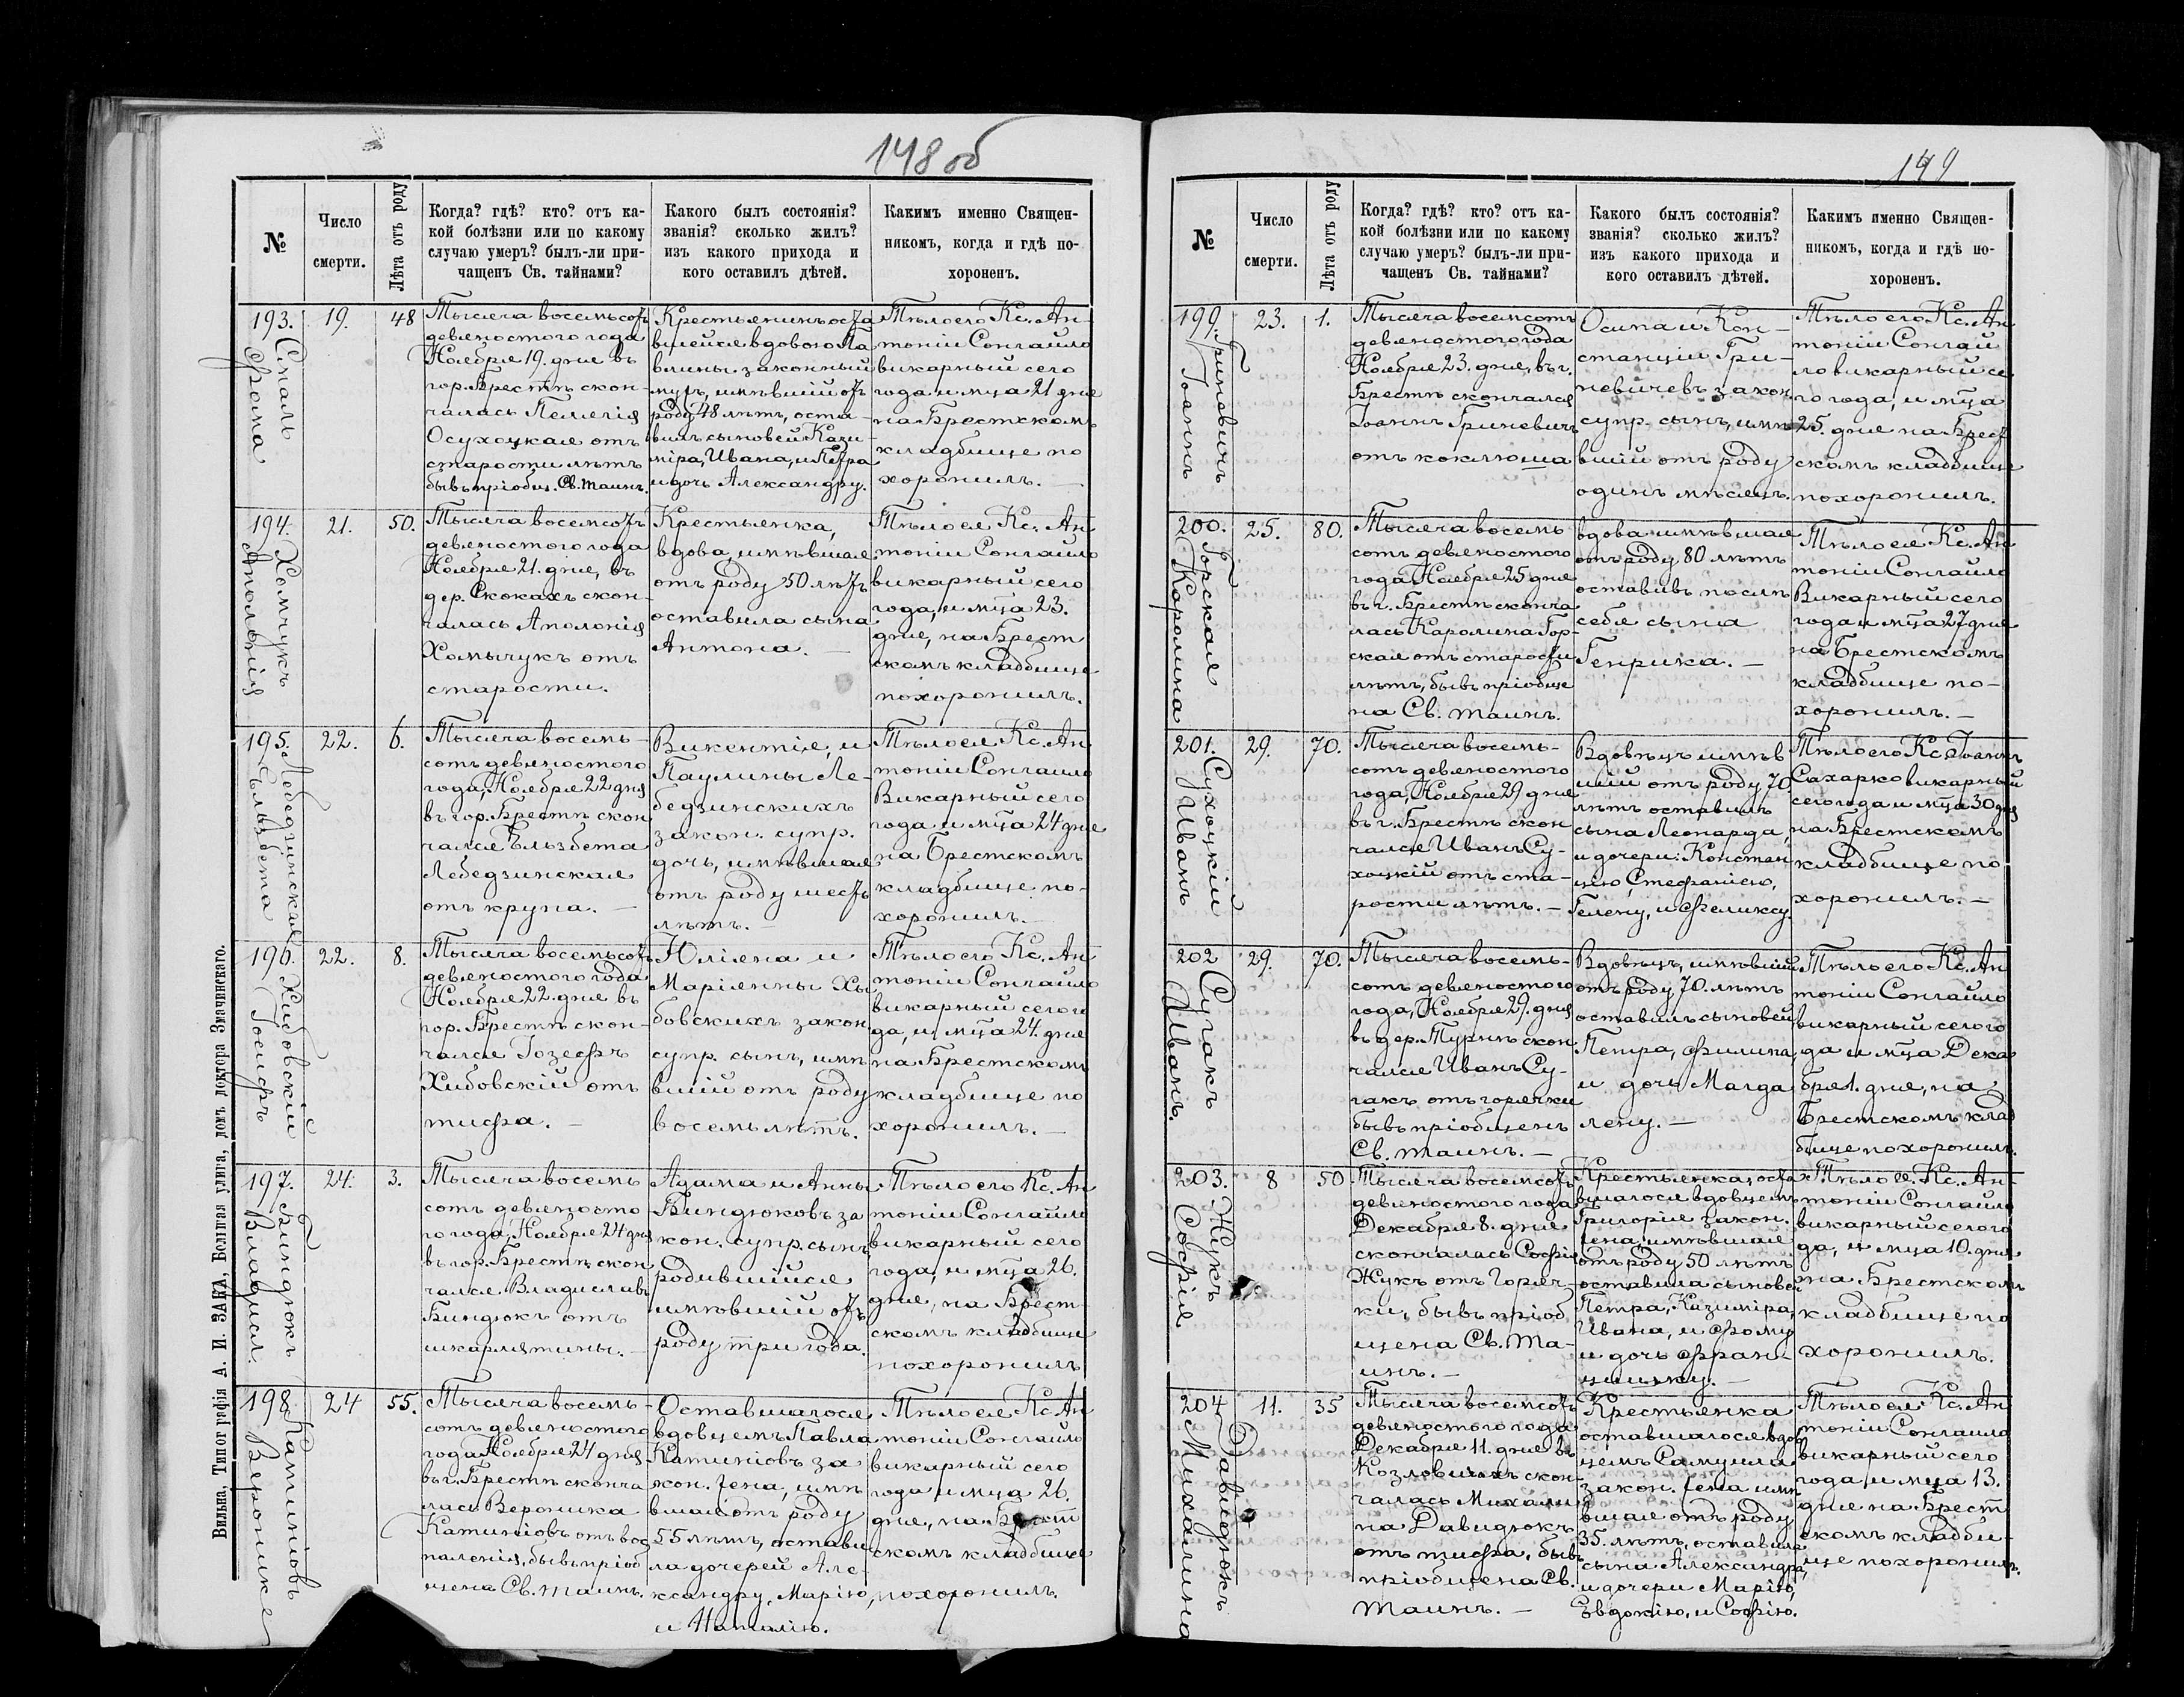 148 об
№
Число
смерти.
Лѣта отъ роду
Когда? гдѣ? кто? отъ ка-
кой болѣзни или по какому
случаю умеръ? былъ-ли при-
чащенъ Св. тайнами?
Какого былъ состоянія?
званія? сколько жилъ?
изъ какого прихода и
кого оставилъ дѣтей.
Какимъ именно Священ-
никомъ, когда и гдѣ по-
хороненъ.
193.
Спаль
Фрома
19.
48
Тысяча восемьсотъ
девяностого года
Ноября 19. дня въ
гор. Брестѣ скон-
чалась Пелегія
Осухоцкая отъ
старости лѣтъ
бывъ пріобщ. Св. таинъ.
Крестьянинъ оста
вшейся вдовою Па
влины законный
мужъ, имѣвшій отъ
роду 48 лѣтъ, оста-
вилъ сыновей Кази-
міра, Ивана, и Петра
и дочь Александру.
Тѣло его Кс. Ан-
тоній Сонгайло
викарный сего
года и мца 21 дня
на Брестскомъ
кладбище по
хоронилъ. —
194.
Хомчукъ
Аполонія
21.
50.
Тысяча восемсотъ
девяностого года
Ноября 21. дня, въ
дер. Скокахъ скон-
чалась Аполонія
Хомычукъ отъ
старости.
Крестьянка,
вдова имѣвшая
отъ роду 50 лѣтъ
оставила сына
Антона. —
Тѣло ея Кс. Ан
тоній Сонгайло
викарный сего
года, и мца 23.
дня, на Брест
скомъ кладбище
похоронилъ.
195.
Лебедзинская
Ельзбета
22.
6.
Тысяча восемь-
сотъ девяностого
года, Ноября 22 дня
въ гор. Брестѣ скон
чался Ельзбета
Лебедзинская
отъ крупа. —
Викентія, и
Паулины Ле-
бедзинскихъ
закон. супр.
дочь, имѣвшая
отъ роду шесть
лѣтъ. —
Тѣло ея Кс. Ан
тоній Сонгайло
Викарный сего
года и мца 24 дня
на Брестскомъ
кладбище по-
хоронилъ. —
196.
Хибовскій
Іосифъ
22.
8.
Тысяча восемьсотъ
девяностого года
Ноября 22. дня въ
гор. Брестѣ скон-
чался Іозефъ
Хибовскій отъ
тифа. —
Юліяна и
Маріянны Хи
бовскихъ закон
супр. сынъ, имѣ
вшій отъ роду
восемь лѣтъ.
Тѣло его Кс. Ан
тоній Сонгайло
викарный сего го
да, и мца 24. дня
на Брестскомъ
кладбище по
хоронилъ. —
197.
Биндюкъ
Владисл.
24.
3.
Тысяча восемь
сотъ девяносто
го года, Ноября 24 дня
въ гор. Брестѣ скон
чался Владиславъ
Биндюкъ отъ
шкарлятины. —
Адама и Анны
Биндюковъ за
кон. супр. сынъ
родившійся
имѣвшій отъ
роду три года.
Тѣло его Кс. Ан
тоній Сонгайло
викарный сего
года, и мца 26.
дня, на Брест-
скомъ кладбище
похоронилъ
198.
Катиніовъ
Вероника
24
55.
Тысяча восемь-
сотъ девяностого
года Ноября 24 дня
въ г. Брестѣ сконча
лась Вероника
Катиніовъ отъ вос
паленія, бывъ пріоб
щена Св. таинъ.
Оставшагося
вдовцемъ Павла
Катиніовъ за
кон. жена, имѣ
вшая отъ роду
55 лѣтъ, остави
ла дочерей Але-
ксандру, Марію,
и Наталію.
Тѣло ея Кс. Ан
тоній Сонгайло
викарный сего
года и мца 26.
дня, на Брест
скомъ кладбище
похоронилъ.
Вильна, Типографія А. И. ЗАКА, Большая улица, домъ доктора Змачинскаго.
149
№
Число
смерти.
Лѣта отъ роду
Когда? гдѣ? кто? отъ ка-
кой болѣзни или по какому
случаю умеръ? былъ-ли при-
чащенъ Св. тайнами?
Какого былъ состоянія?
званія? сколько жилъ?
изъ какого прихода и
кого оставилъ дѣтей.
Какимъ именно Священ-
никомъ, когда и гдѣ по-
хороненъ.
199.
Гриневичъ
Іоаннъ
23.
1.
Тысяча восемсотъ
девяностого года
Ноября 23. дня, въ г.
Брестѣ скончался
Іоаннъ Гриневичъ
отъ коклюша
Осипа и Кон-
станціи Гри-
невичевъ закон.
супр. сынъ, имѣ
вшій отъ роду
одинъ мѣсяцъ.
Тѣло его Кс. Ан
тоній Сонгай
ло викарный се
го года, и мца
25. дня на Брест
скомъ кладбище
похоронилъ.
200.
Горская
Каролина
25.
80.
Тысяча восемь
сотъ девяностого
года, Ноября 25 дня
въ г. Брестѣ сконча
лась Каролина Гор-
ская отъ старости
лѣтъ, бывъ пріобще
на Св. таинъ.
вдова имѣвшая
отъ роду 80 лѣтъ
оставивъ послѣ
себя сына
Генрика. —
Тѣло ея Кс. Ан
тоній Сонгайло
Викарный сего
года и мца 27 дня
на Брестскомъ
кладбище по-
хоронилъ. —
201.
Сухоцкій
Иванъ
29.
70.
Тысяча восемь-
сотъ девяностого
года, Ноября 29 дня
въ г. Брестѣ скон
чался Иванъ Су-
хоцкій отъ ста-
рости лѣтъ. —
Вдовецъ имѣв
шій отъ роду 70
лѣтъ оставилъ
сына Леонарда,
и дочери: Констан
цію, Стефанію,
Гелену, и Феликсу.
Тѣло его Кс. Іоаннъ
Сахарко викарный
сего года и мца 30 дня
на Брестскомъ
кладбище по
хоронилъ. —
202
Сугакъ
Иванъ.
29.
70.
Тысяча восемь-
сотъ девяностого
года, Ноября 29. дня
въ дер. Турнѣ скон
чался Иванъ Су-
гакъ отъ горячки
бывъ пріобщенъ
Св. таинъ. —
Вдовецъ, имѣвшій
отъ роду 70. лѣтъ
оставилъ сыновей
Петра, Филипа,
и дочь Магда
лену. —
Тѣло его Кс. Ан
тоній Сонгайло
викарный сего го
да и мца Дека
бря 1. дня, на
Брестскомъ клад
бище похоронилъ.
203.
Жукъ
Софія
8
50
Тысяча восемсотъ
девяностого года
Декабря 8. дня
скончалась Софія
Жукъ отъ Горяч-
ки, бывъ пріоб
щена Св. Та-
инъ. —
Крестьянка, оста
вшагося вдовцемъ
Григорія закон.
жена, имѣвшая
отъ роду 50 лѣтъ
оставила сыновей
Петра, Казиміра,
Ивана, и Фрому
и дочь Фран-
цишку. —
Тѣло ея Кс. Ан-
тоній Сонгайло
викарный сего го
да, и мца 10. дня
на Брестскомъ
кладбище по
хоронилъ.
204
Давидюкъ
Михалина
11.
35
Тысяча восемсотъ
девяностого года
Декабря 11. дня въ
Козловичахъ скон-
чалась Михали
на Давидюкъ
отъ тифа, бывъ
пріобщена Св.
Таинъ. —
Крестьянка
оставшагося вдов
цемъ Самуила
закон. жена имѣ
вшая отъ роду
35. лѣтъ, оставила
сына Александра,
и дочери Марію,
Евдокію, и Софію.
Тѣло ея Кс. Ан
тоній Сонгайло
викарный сего
года, и мца 13.
дня на Брест
скомъ кладби-
ще похоронилъ.